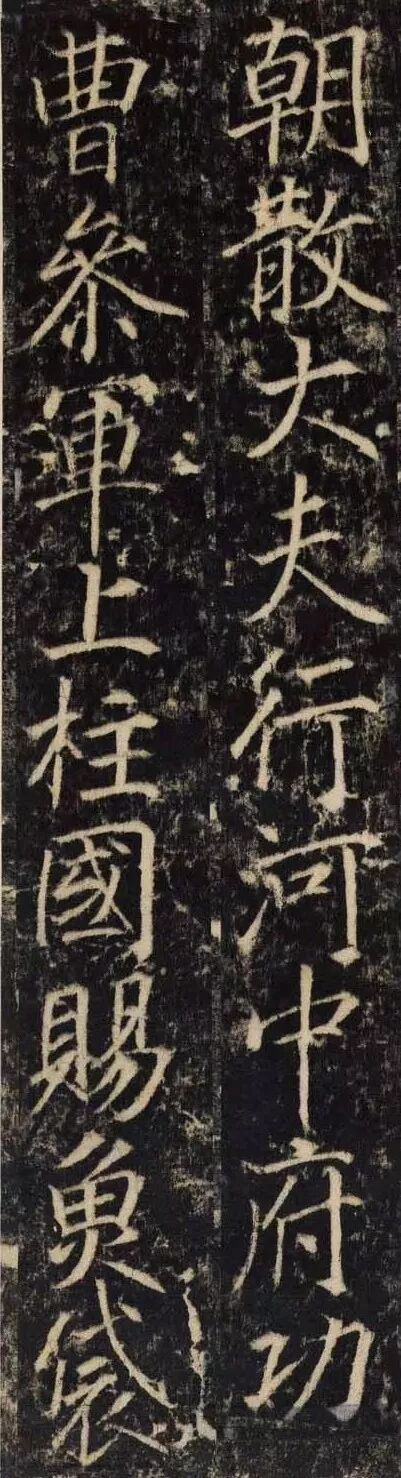 朝散大夫行河中府功
曹參軍上柱國賜魚袋